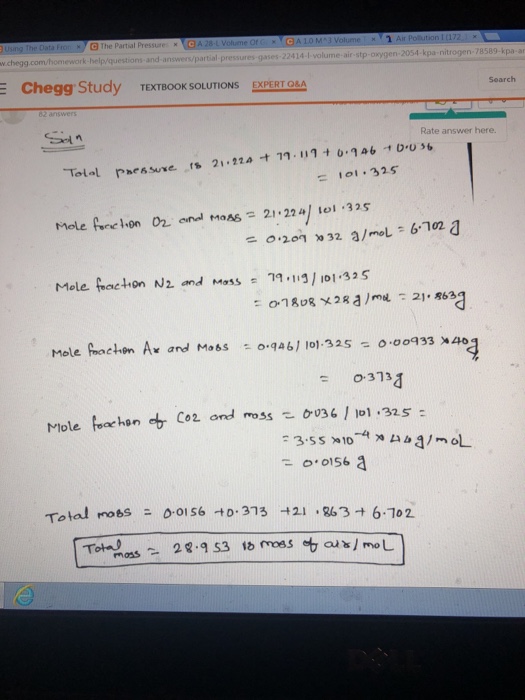 The Partial Pressure
w.chegg.com/homework-help/questions-and-answers/partial-pressures-gases-22414-l-volume-air-stp-oxygen-2054-kpa-nitrogen-78589-kpa-ar
Chegg Study TEXTBOOK SOLUTIONS EXPERT Q&A Search
62 answers
Rate answer here.
Soln
Total pressure is 21.224 + 79.119 + 0.946 + 0.036
= 101.325
Mole fraction O2 and Mass = 21.224/101.325
= 0.209 × 32 g/mol = 6.702 g
Mole fraction N2 and Mass = 79.119/101.325
= 0.7808 × 28 g/mol = 21.863g
Mole fraction Ar and Mass = 0.946/101.325 = 0.00933 × 40g
= 0.373 g
Mole fraction of CO2 and mass = 0.036/101.325 =
= 3.55 × 10⁻⁴ × 44g/moL
= 0.0156 g
Total mass = 0.0156 + 0.373 + 21.863 + 6.702
Total mass = 28.953 is mass of air/moL
DELL